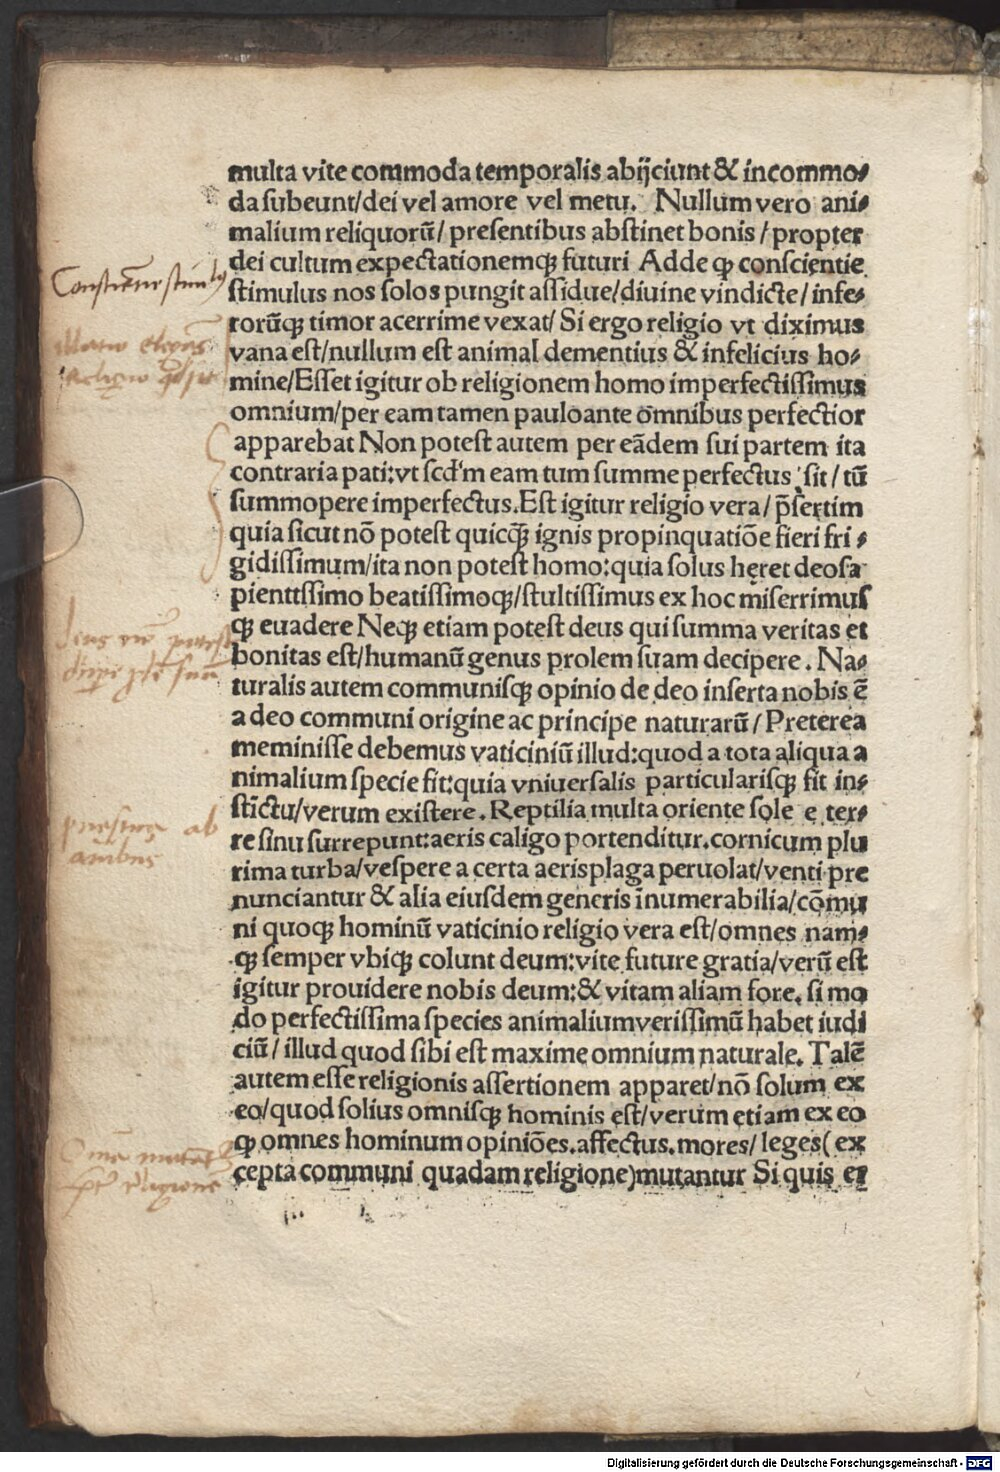 multa vite commoda temporalis abijciunt & incommo⸗
da subeunt/dei vel amore vel metu. Nullum vero ani⸗
malium reliquorū/ presentibus abstinet bonis / propter
dei cultum expectationemqꝫ futuri Adde ꝙ conscientie
Conscientie stimulus
stimulus nos solos pungit assidue/diuine vindicte/ infe⸗
rorūqꝫ timor acerrime vexat/ Si ergo religio vt diximus
vana est/nullum est animal dementius & infelicius ho⸗
mine/Esset igitur ob religionem homo imperfectissimus
omnium/per eam tamen pauloante omnibus perfectior
apparebat Non potest autem per eādem sui partem ita
contraria pati:vt scd'm eam tum summe perfectus sit/ tū
summopere imperfectus.Est igitur religio vera/ p̄sertim
quia sicut nō potest quicꝙ̄ ignis propinquatiōe fieri fri⸗
gidissimum/ita non potest homo:quia solus hęret deo sa
pienttssimo beatissimoqꝫ/stultissimus ex hoc miserrimus
qꝫ euadere Neqꝫ etiam potest deus qui summa veritas et
bonitas est/humanū genus prolem suam decipere. Na⸗
turalis autem communisqꝫ opinio de deo inserta nobis ē
a deo communi origine ac principe naturarū/ Preterea
meminisse debemus vaticiniū illud:quod a tota aliqua a
nimalium specie fit:quia vniuersalis particularisqꝫ fit in⸗
stīctu/verum existere. Reptilia multa oriente sole e ter⸗
re sinu surrepunt:aeris caligo portenditur.cornicum plu
praesagia ab
avibus
rima turba/vespere a certa aerisplaga peruolat/venti pre
nunciantur & alia eiusdem generis īnumerabilia/cōmu
ni quoqꝫ hominū vaticinio religio vera est/omnes nam⸗
qꝫ semper vbiqꝫ colunt deum:vite future gratia/verū est
igitur prouidere nobis deum:& vitam aliam fore, si mo
do perfectissima species animaliumverissimū habet iudi
ciū/ illud quod sibi est maxime omnium naturale. Talē
autem esse religionis assertionem apparet/nō solum ex
eo/quod solius omnisqꝫ hominis est/verum etiam ex eo
ꝙ omnes hominum opiniōes.affectus.mores/ leges( ex
cepta communi quadam religione)mutantur Si quis er
Digitalisierung gefördert durch die Deutsche Forschungsgemeinschaft - DFG